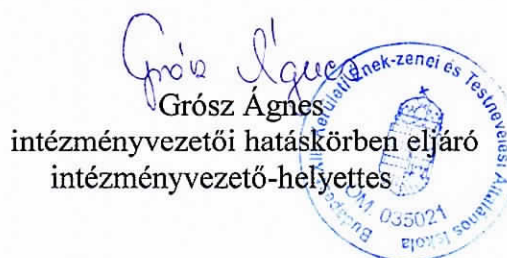 Grósz Ágnes
Grósz Ágnes
intézményvezetői hatáskörben eljáró
intézményvezető-helyettes
Ének-zenei és Testnevelési Általános Iskola
Budapest
kerületi
OM: 035021